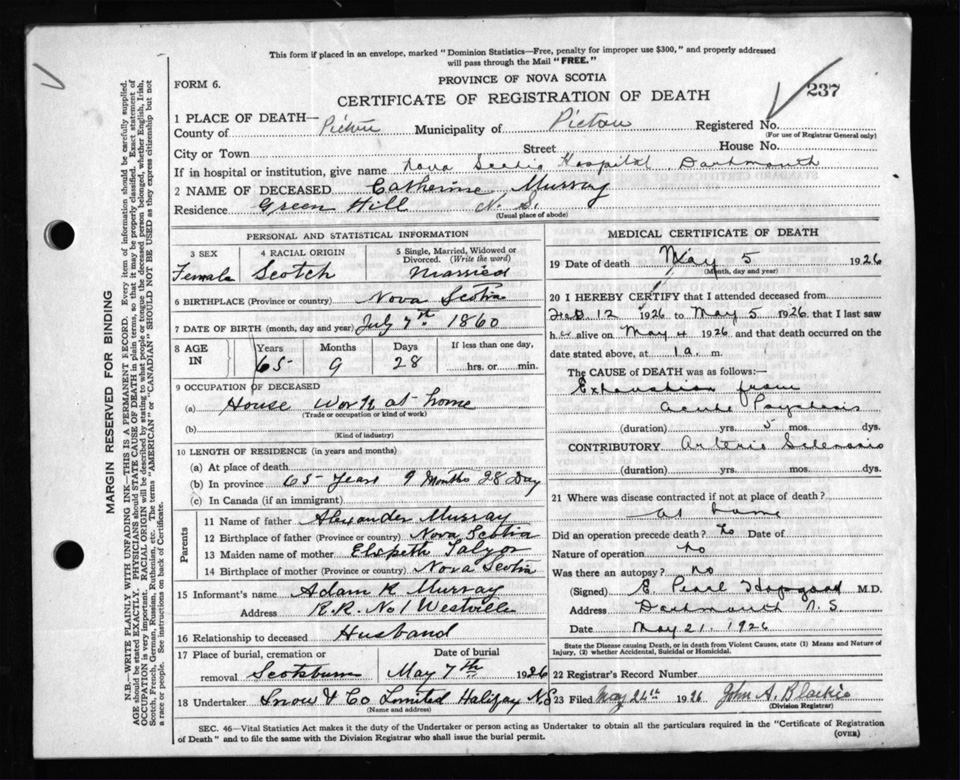 This form if placed in an envelope, marked "Dominion Statistics—Free, penalty for improper use $300," and properly addressed
will pass through the Mail "FREE."
PROVINCE OF NOVA SCOTIA
237
FORM 6.
CERTIFICATE OF REGISTRATION OF DEATH
1 PLACE OF DEATH—
County of Pictou Municipality of Pictou Registered No.
(For use of Registrar General only)
City or Town Street House No.
If in hospital or institution, give name Nova Scotia Hospital Dartmouth
2 NAME OF DECEASED Catherine Murray
Residence Green Hill N.S.
(Usual place of abode)
PERSONAL AND STATISTICAL INFORMATION
3 SEX 4 RACIAL ORIGIN 5 Single, Married, Widowed or
Divorced. (Write the word)
Female Scotch Married
6 BIRTHPLACE (Province or country) Nova Scotia
7 DATE OF BIRTH (month, day and year) July 7th 1860
8 AGE IN Years Months Days If less than one day,
65 9 28 hrs. or min.
9 OCCUPATION OF DECEASED
(a) House Work at home
(Trade or occupation or kind of work)
(b)
(Kind of industry)
10 LENGTH OF RESIDENCE (in years and months)
(a) At place of death
(b) In province 65 Years 9 Months 28 Day
(c) In Canada (if an immigrant)
Parents
11 Name of father Alexander Murray
12 Birthplace of father (Province or country) Nova Scotia
13 Maiden name of mother Elspeth
14 Birthplace of mother (Province or country) Nova Scotia
15 Informant's name Adam R Murray
Address R.R. No 1 Westville
16 Relationship to deceased Husband
17 Place of burial, cremation or Date of burial
removal Scotsburn May 7th 1926
18 Undertaker Snow & Co Limited Halifax N.S
(Name and address)
MEDICAL CERTIFICATE OF DEATH
19 Date of death May 5 1926
(Month, day and year)
20 I HEREBY CERTIFY that I attended deceased from
Feb 12 1926 to May 5 1926, that I last saw
her alive on May 4 1926 and that death occurred on the
date stated above, at 1 a. m.
The CAUSE OF DEATH was as follows:—
Exhaustion from
acute
(duration) yrs. 5 mos. dys.
CONTRIBUTORY Arterio Sclerosis
(duration) yrs. mos. dys.
21 Where was disease contracted if not at place of death?
at home
Did an operation precede death? no Date of
Nature of operation no
Was there an autopsy? no
(Signed) E Pearl Hopgood M.D.
Address Dartmouth N.S
Date May 21. 1926
State the Disease causing Death, or in death from Violent Causes, state (1) Means and Nature of
Injury, (2) whether Accidental, Suicidal or Homicidal.
22 Registrar's Record Number
23 Filed May 24th 1926 John A. Blaikie
(Division Registrar)
SEC. 46—Vital Statistics Act makes it the duty of the Undertaker or person acting as Undertaker to obtain all the particulars required in the "Certificate of Registration
of Death" and to file the same with the Division Registrar who shall issue the burial permit. (OVER)
MARGIN RESERVED FOR BINDING
N.B.—WRITE PLAINLY WITH UNFADING INK—THIS IS A PERMANENT RECORD. Every item of information should be carefully supplied.
AGE should be stated EXACTLY. PHYSICIANS should STATE CAUSE OF DEATH in plain terms, so that it may be properly classified. Exact statement of
OCCUPATION is very important. RACIAL ORIGIN will be described by stating to what people or tongue the deceased person belonged, whether English, Irish,
Scotch, French, German, Russian, Ruthenian, etc. The terms "AMERICAN" or "CANADIAN" SHOULD NOT BE USED as they express citizenship but not
a race or people. See instructions on back of Certificate.